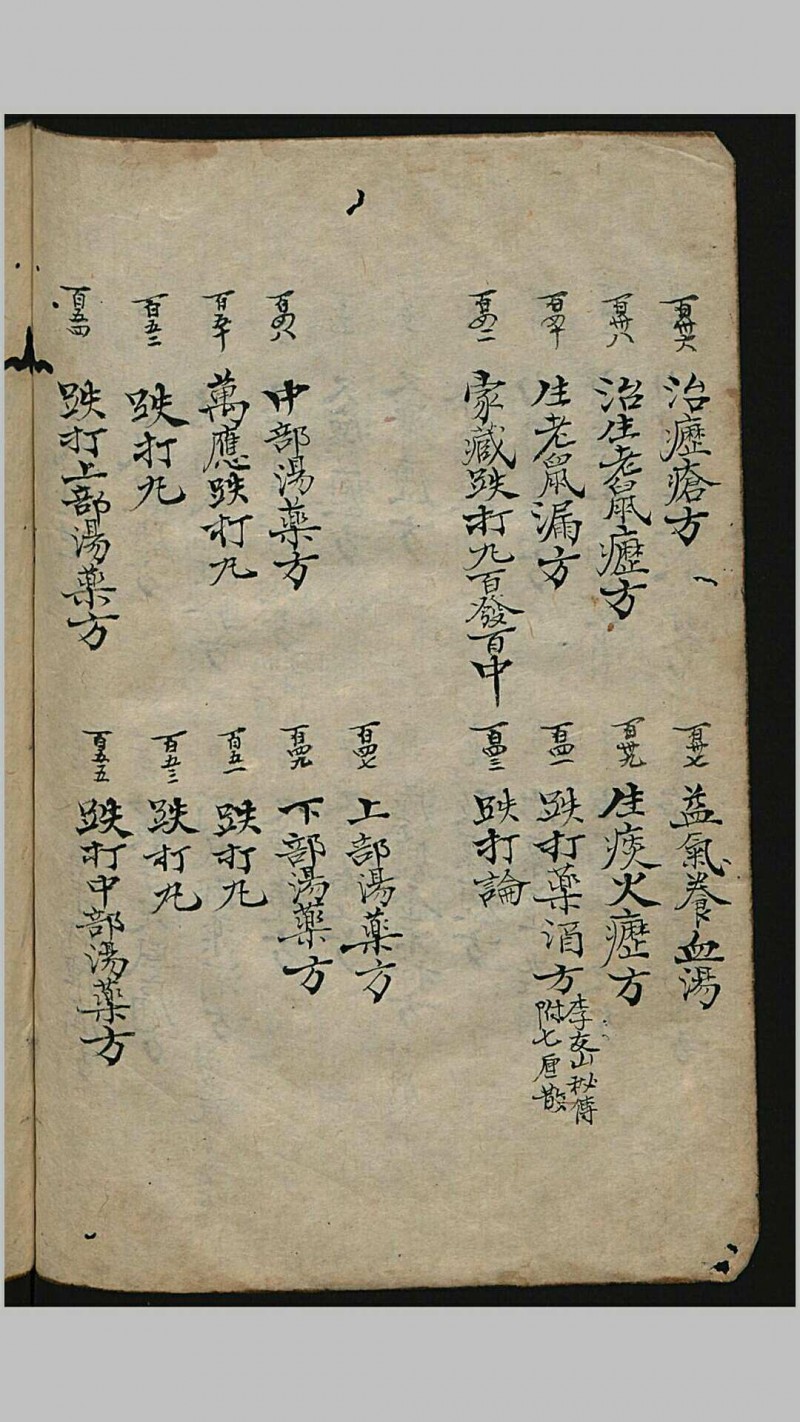 百卅六 治癧瘡方
百卅七 益氣養血湯
百卅八 治生老鼠癧方
百卅九 生痰火癧方
百四十 生老鼠漏方
百四一 跌打薬酒方 李友山秘傳 附七厘散
百四二 家藏跌打丸百發百中
百四三 跌打論
百四七 上部湯薬方
百四八 中部湯薬方
百四九 下部湯薬方
百五十 萬應跌打丸
百五一 跌打丸
百五二 跌打丸
百五三 跌打丸
百五四 跌打上部湯薬方
百五五 跌打中部湯薬方